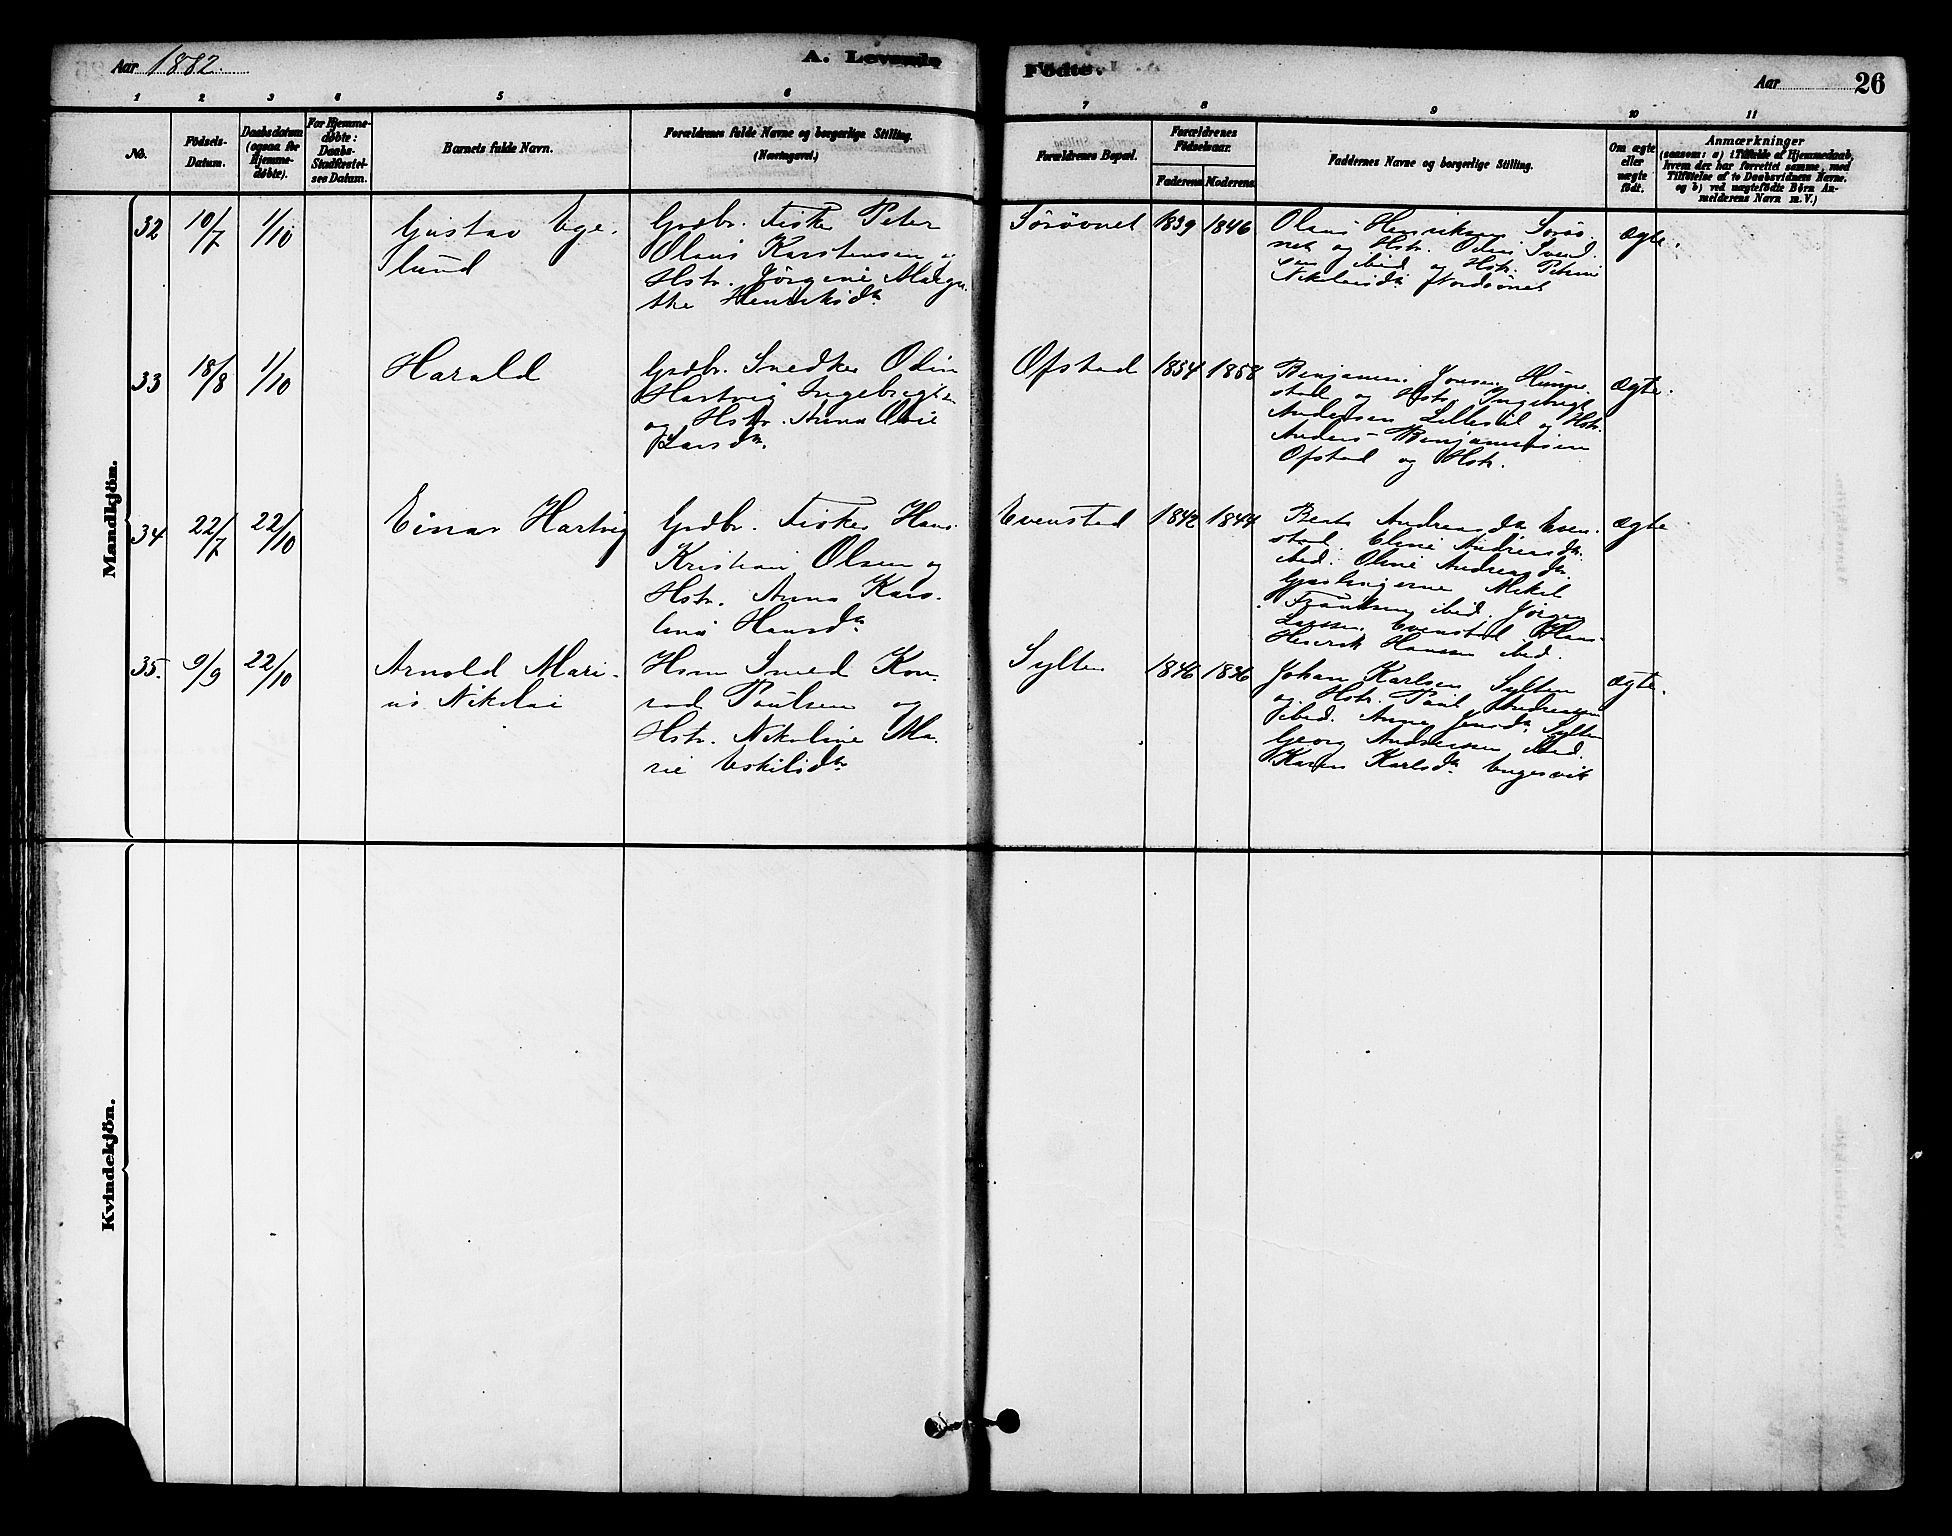 Aar 1882.
A. Levende
Fødte.
Aar
26
1 2 3 4 5 6 7 8 9 10 11
No.
Födsels-
Datum.
Daabsdatum
(ogsaa for
Hjemme-
døbte).
For Hjemme-
døbte:
Daabs-
Stadfæstel-
ses Datum.
Barnets fulde Navn.
Forældrenes fulde Navne og borgerlige Stilling.
(Næringsvei.)
Forældrenes Bopæl.
Forældrenes
Fødselsaar.
Faderens Moderens
Faddernes Navne og borgerlige Stilling.
Om ægte
eller
uægte
födt.
Anmærkninger
(saasom: a) i Tilfælde af Hjemmedaab,
hvem der har forrettet samme, med
Tilføielse af to Daabsvidners Navne,
og b) ved uægtefødte Børn An-
melderens Navn m. V.)
Mandkjön.
32
10/7
1/10
Gustav Ege-
lund
Grdbr. Fisker Peter
Olaus Karstensen og
Hstr. Jørgine Margre-
the Henriksdr
Sørøvnet
1839
1846
Olaus Henriksen Sørøv-
net og Hstr. Odin Svend-
sen ibid og Hstr. Petrine
Nikolaisdr Nordøvnet
ægte.
33
18/8
1/10
Harald
Grdbr. Snedker Odin
Hartvig Ingebrigtsen
og Hstr. Anna
Larsdr.
Ofstad
1854
1858
Benjamin Jonsen
og Hstr. Ingebrigt
Andersen og Hstr.
Anders Benjaminsen
Ofstad og Hstr.
ægte.
34
22/7
22/10
Einar Hartvig
Grdbr. Fisker Hans
Kristian Olsen og
Hstr. Anna Karo-
line Hansdr
Evenstad
1842
1844
Andreasdr Even-
stad. Eline Andreasdr
ibid. Oline Andreasdr
Mikal
Frantsen ibid. Jørgen
Larsen Evenstad Hans
Henrik Hansen ibid.
ægte
35.
9/9
22/10
Arnold Mari-
us Nikolai
Hsm Smed Kon-
rad Paulsen og
Hstr. Nikoline Ma-
rie Eskilsdr
Sylten
1846
1836
Johan Karlsen Sylten
og Hstr. Paul Andreassen
ibid. Anne Jensdr Sylten
Georg Andreassen ibid.
Karen Karlsdr Engesvik
ægte.
Kvindekjön.